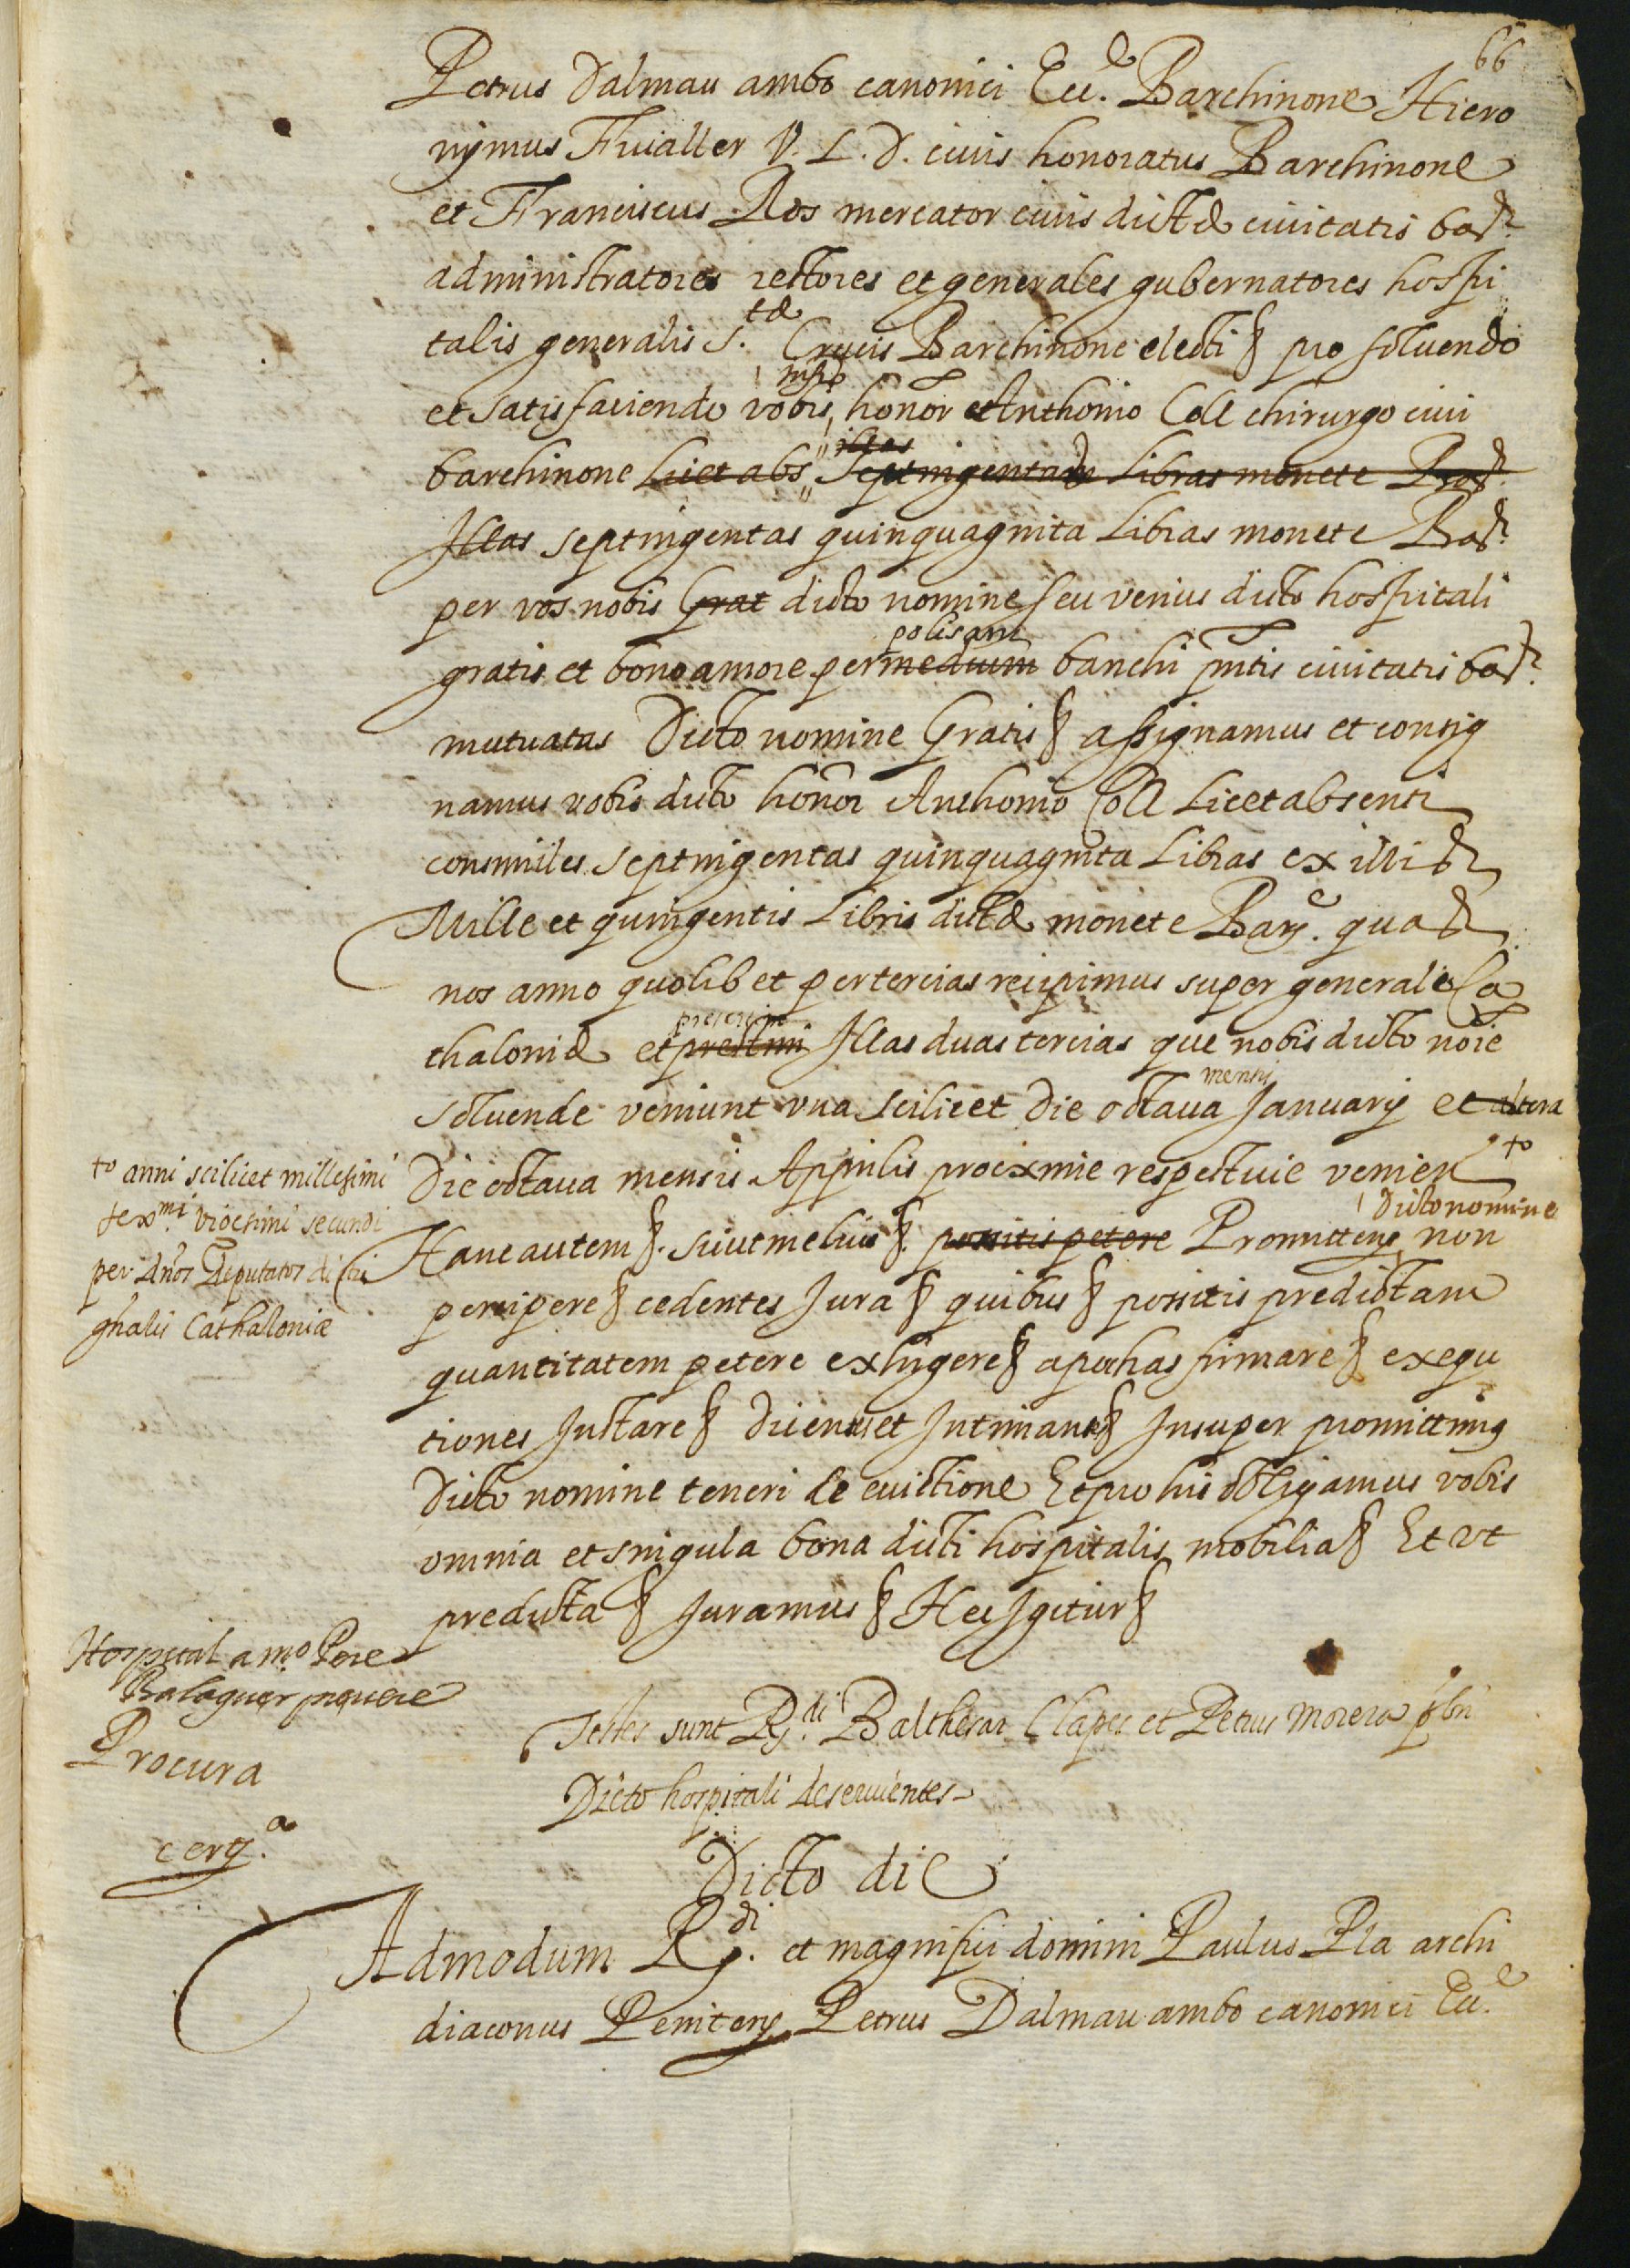 66
Petrus Dalmau ambo canonici Ecc.e Barchinone Hiero
nymus Fivaller V. L. D. civis honoratus Barchinone
et Franciscus Ros mercator civis dictæ civitatis
administratores rectores et generales gubernatores hospi
talis generalis S.tæ Crucis Barchinone electi § pro solvendo
et satisfaciendo vobis honor Anthonio Coll chirurgo civi
barchinone licet abs illas septingentas libras monete
Illas septingentas quinquaginta libras monete
per vos nobis Grat dicto nomine seu verius dicto hospitali
polisam
gratis et bono amore per medium banchi pntis civitatis
mutuatas Dicto nomine Gratis § assignamus et consig
namus vobis dicto honor Anthonio Coll licet absenti
consimiles septingentas quinquaginta libras ex illis
Mille et quingentis libris dictæ monete Barz.e quas
nos anno quolibet per tercias recipimus super generale Ca
thaloniæ et Illas duas tercias que nobis dicto noie
mensis
solvende veniunt una scilicet die octava Januarij et altera
Die octava mensis Apprilis proxime respective venien to
to anni scilicet millesimi
sexmi. vigesimi secundi
per dños Deputatos dicti
gñalis Cathaloniæ
Dicto nomine
Hanc autem §. sicut melius §. possitis petere Promittens non
percipere § cedentes Jura § quibus § possitis predictam
quantitatem petere exhigere § apochas firmare § exequ
tiones Instare § Dicentes et Intimantes § Insuper promittimus
Dicto nomine teneri de evictione Et pro his obligamus vobis
omnia et singula bona dicti hospitalis mobilia § Et ut
predicta § Juramus § Hec Igitur §
Testes sunt R.di Balthesar Clapes et Petrus Morera pbri
Dicto hospitali deservientes
Hospital a mo. Pere
Balaguer
Procura
Dicto die
Admodum R.di et magnifici domini Paulus Pla archi
diaconus Penitens Petrus Dalmau ambo canonici Ecc.e